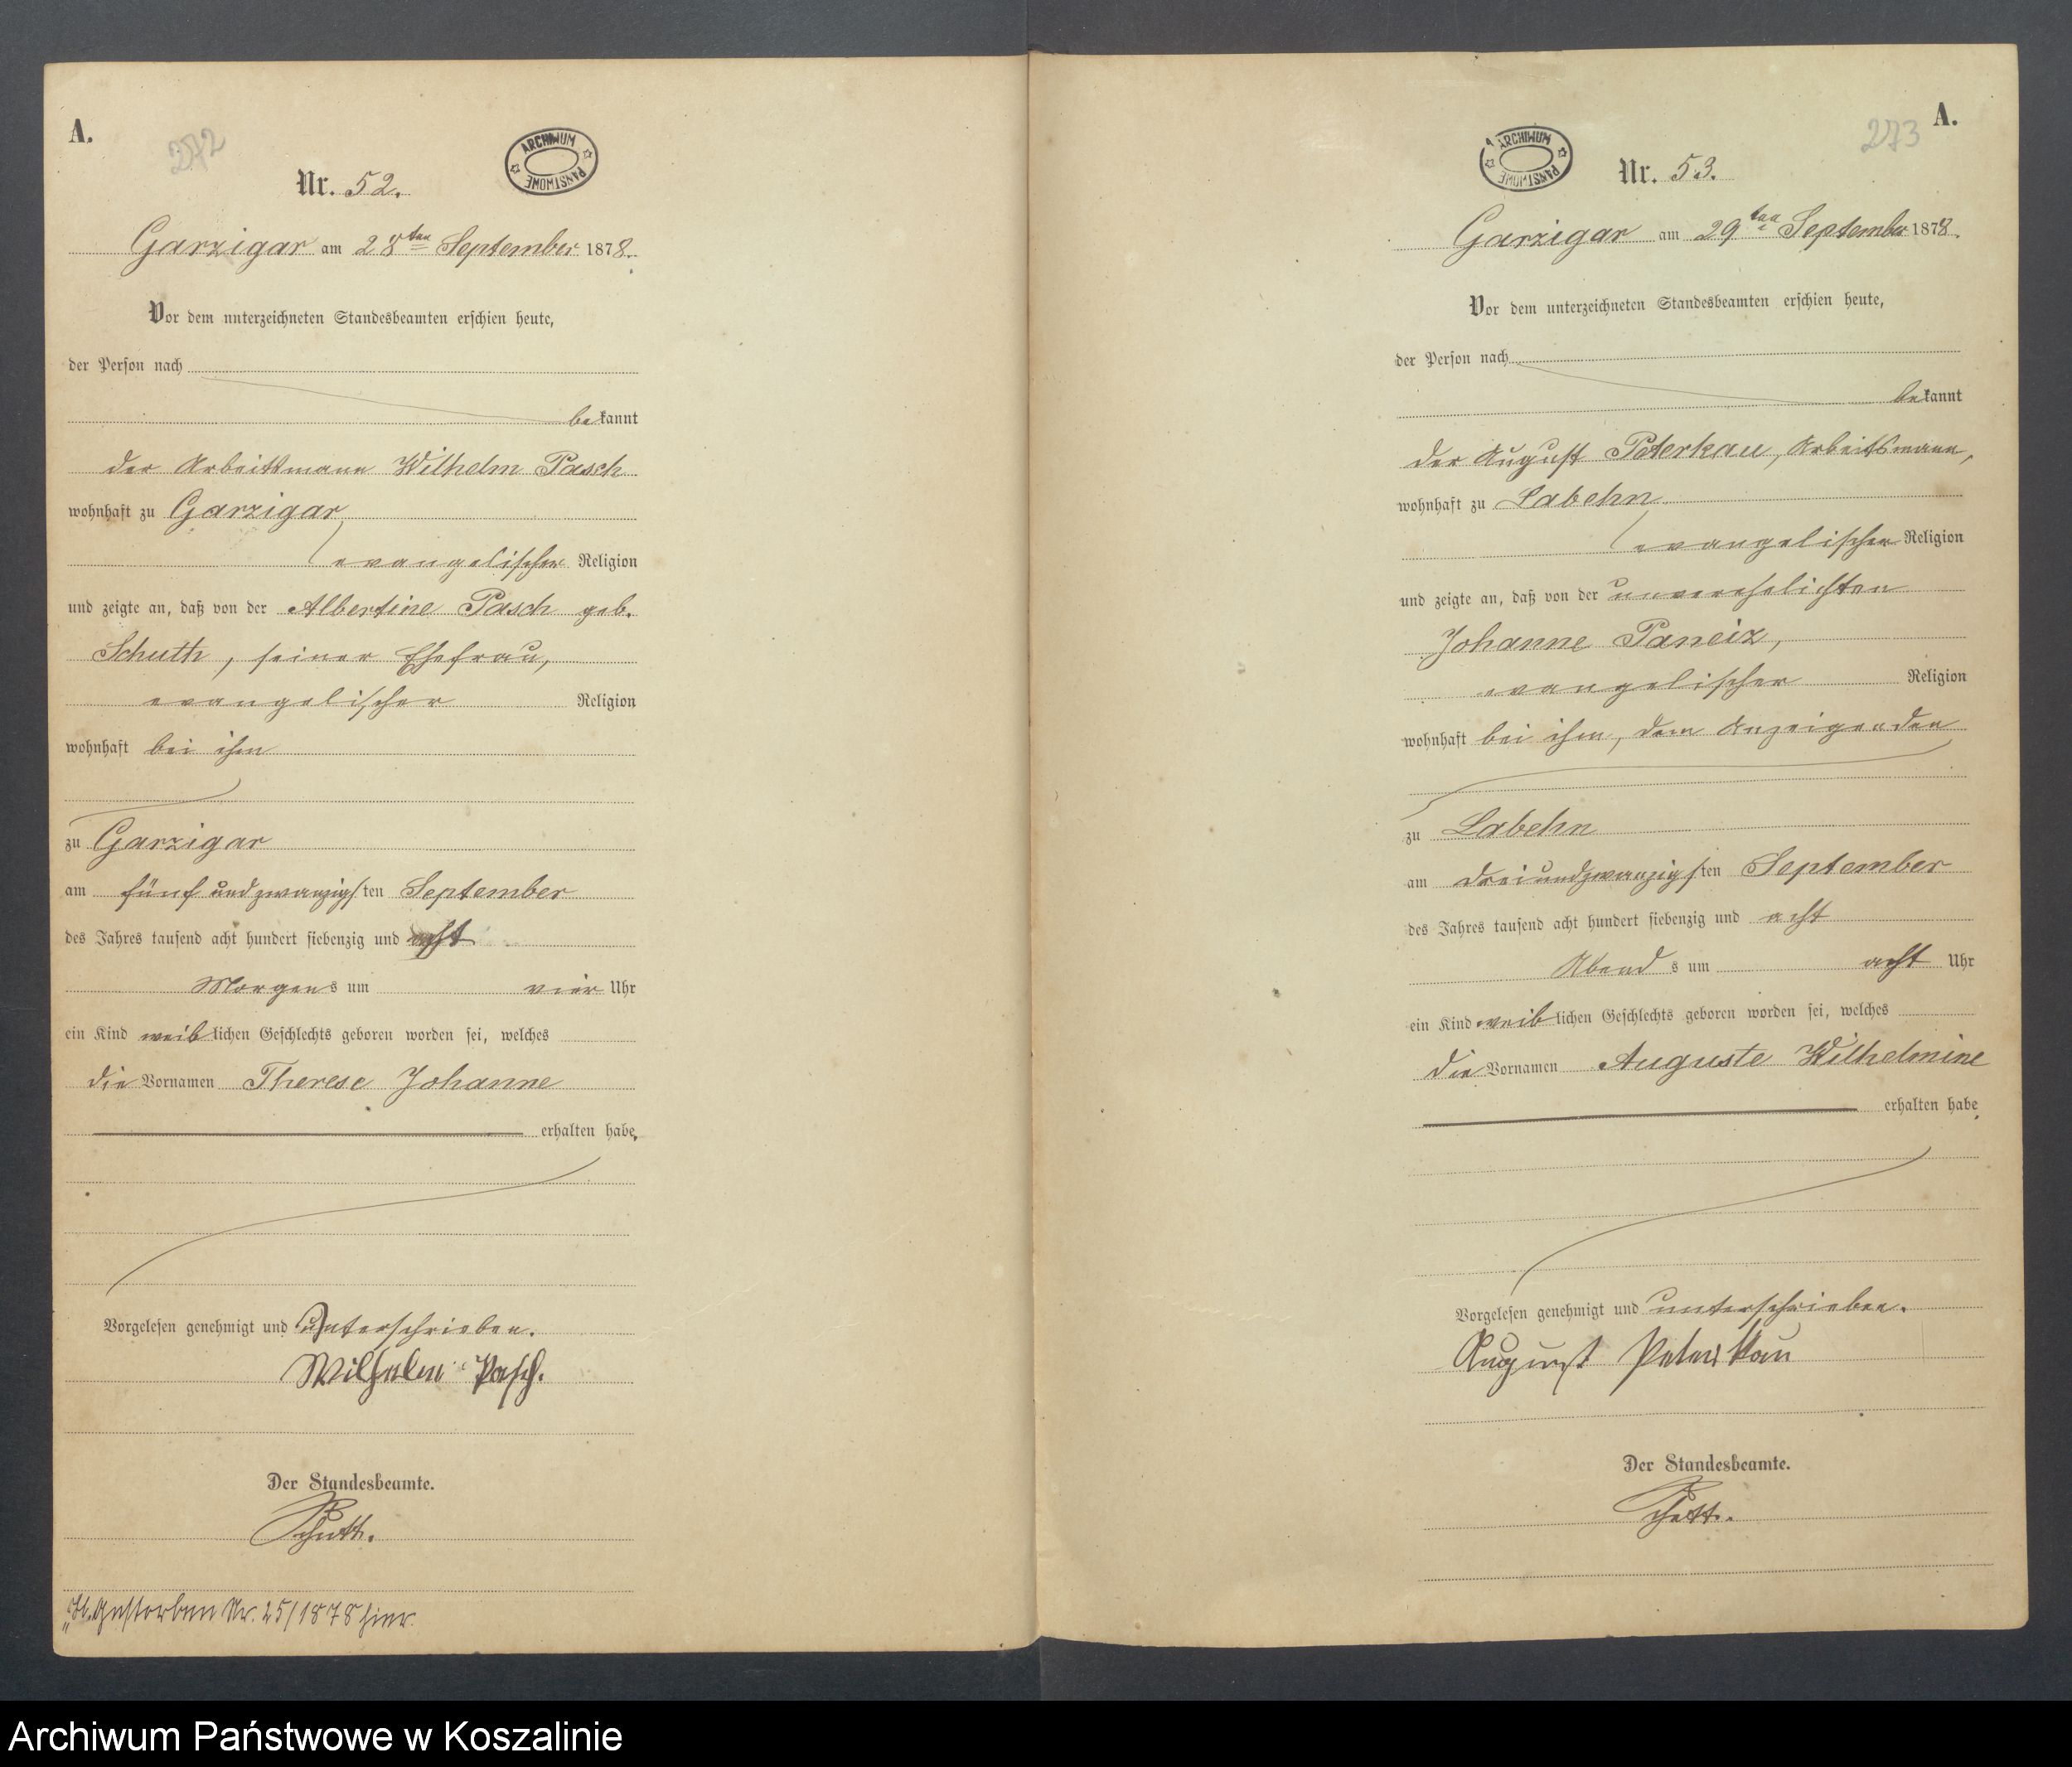 A.
272
ARCHIWUM PAŃSTWOWE
Nr. 52.
Garzigar am 28ten September 1878.
Vor dem unterzeichneten Standesbeamten erschien heute,
der Person nach
bekannt
der Arbeitsmann Wilhelm Pasch
wohnhaft zu Garzigar,
evangelischer Religion
und zeigte an, daß von der Albertine Pasch geb.
Schuth, seiner Ehefrau,
evangelischer Religion
wohnhaft bei ihm
zu Garzigar
am fünf und zwanzigsten September
des Jahres tausend acht hundert siebenzig und acht
Morgens um vier Uhr
ein Kind weiblichen Geschlechts geboren worden sei, welches
die Vornamen Therese Johanne
erhalten habe.
Vorgelesen genehmigt und unterschrieben.
Wilhelm Pasch.
Der Standesbeamte.
Schutt.
Gestorben Nr. 25/1878 hier.
A.
273
ARCHIWUM PAŃSTWOWE
Nr. 53.
Garzigar am 29ten September 1878.
Vor dem unterzeichneten Standesbeamten erschien heute,
der Person nach
bekannt
der August Peterkau, Arbeitsmann,
wohnhaft zu Labehn
evangelischer Religion
und zeigte an, daß von der unverehelichten
Johanne Paneiz,
evangelischer Religion
wohnhaft bei ihm, dem Anzeigenden
zu Labehn
am dreiundzwanzigsten September
des Jahres tausend acht hundert siebenzig und acht
Abends um acht Uhr
ein Kind weiblichen Geschlechts geboren worden sei, welches
die Vornamen Auguste Wilhelmine
erhalten habe.
Vorgelesen genehmigt und unterschrieben.
August Peterkau
Der Standesbeamte.
Schutt.
Archiwum Państwowe w Koszalinie